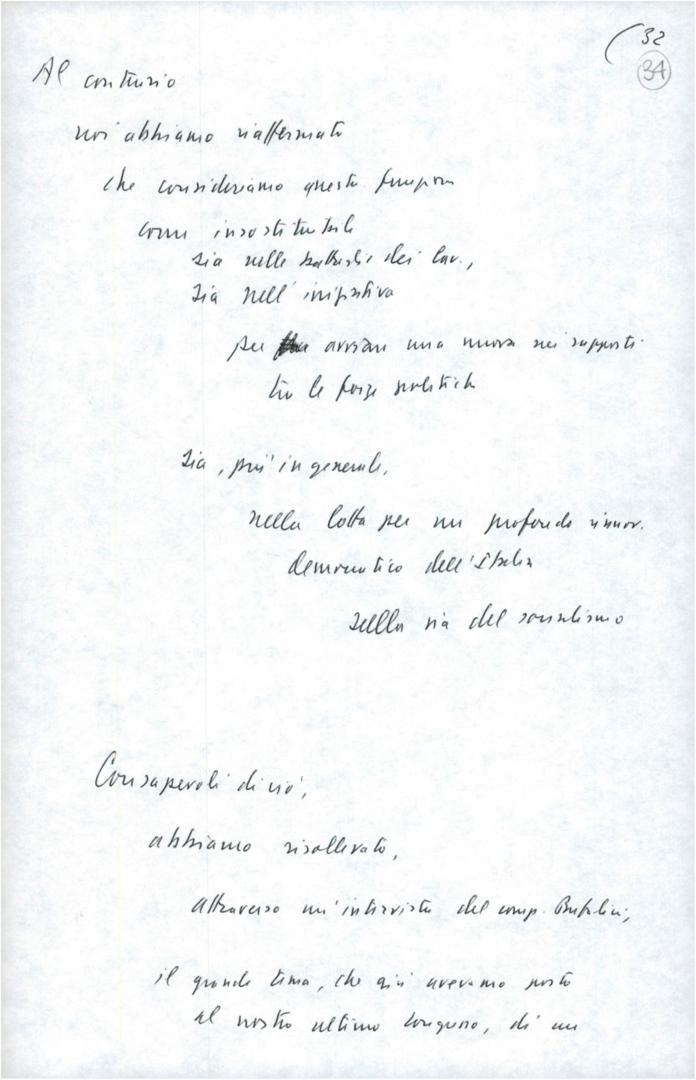 32
34
Al contrario
noi abbiamo riaffermato
che consideriamo questa funzione
come insostituibile
sia nelle battaglie dei lav.,
sia nell'iniziativa
per avviare una nuova nei rapporti
tra le forze politiche
sia, più in generale,
nella lotta per un profondo rinnov.
democratico dell'Italia
sulla via del socialismo
Consapevoli di ciò,
abbiamo risollevato,
attraverso un'intervista del comp. Bufalini,
il grande tema, che già avevamo posto
al nostro ultimo Congresso, di un